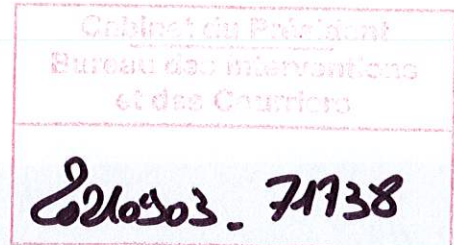 Cabinet du Président
Bureau des Interventions
et des Courriers
20210903_71738